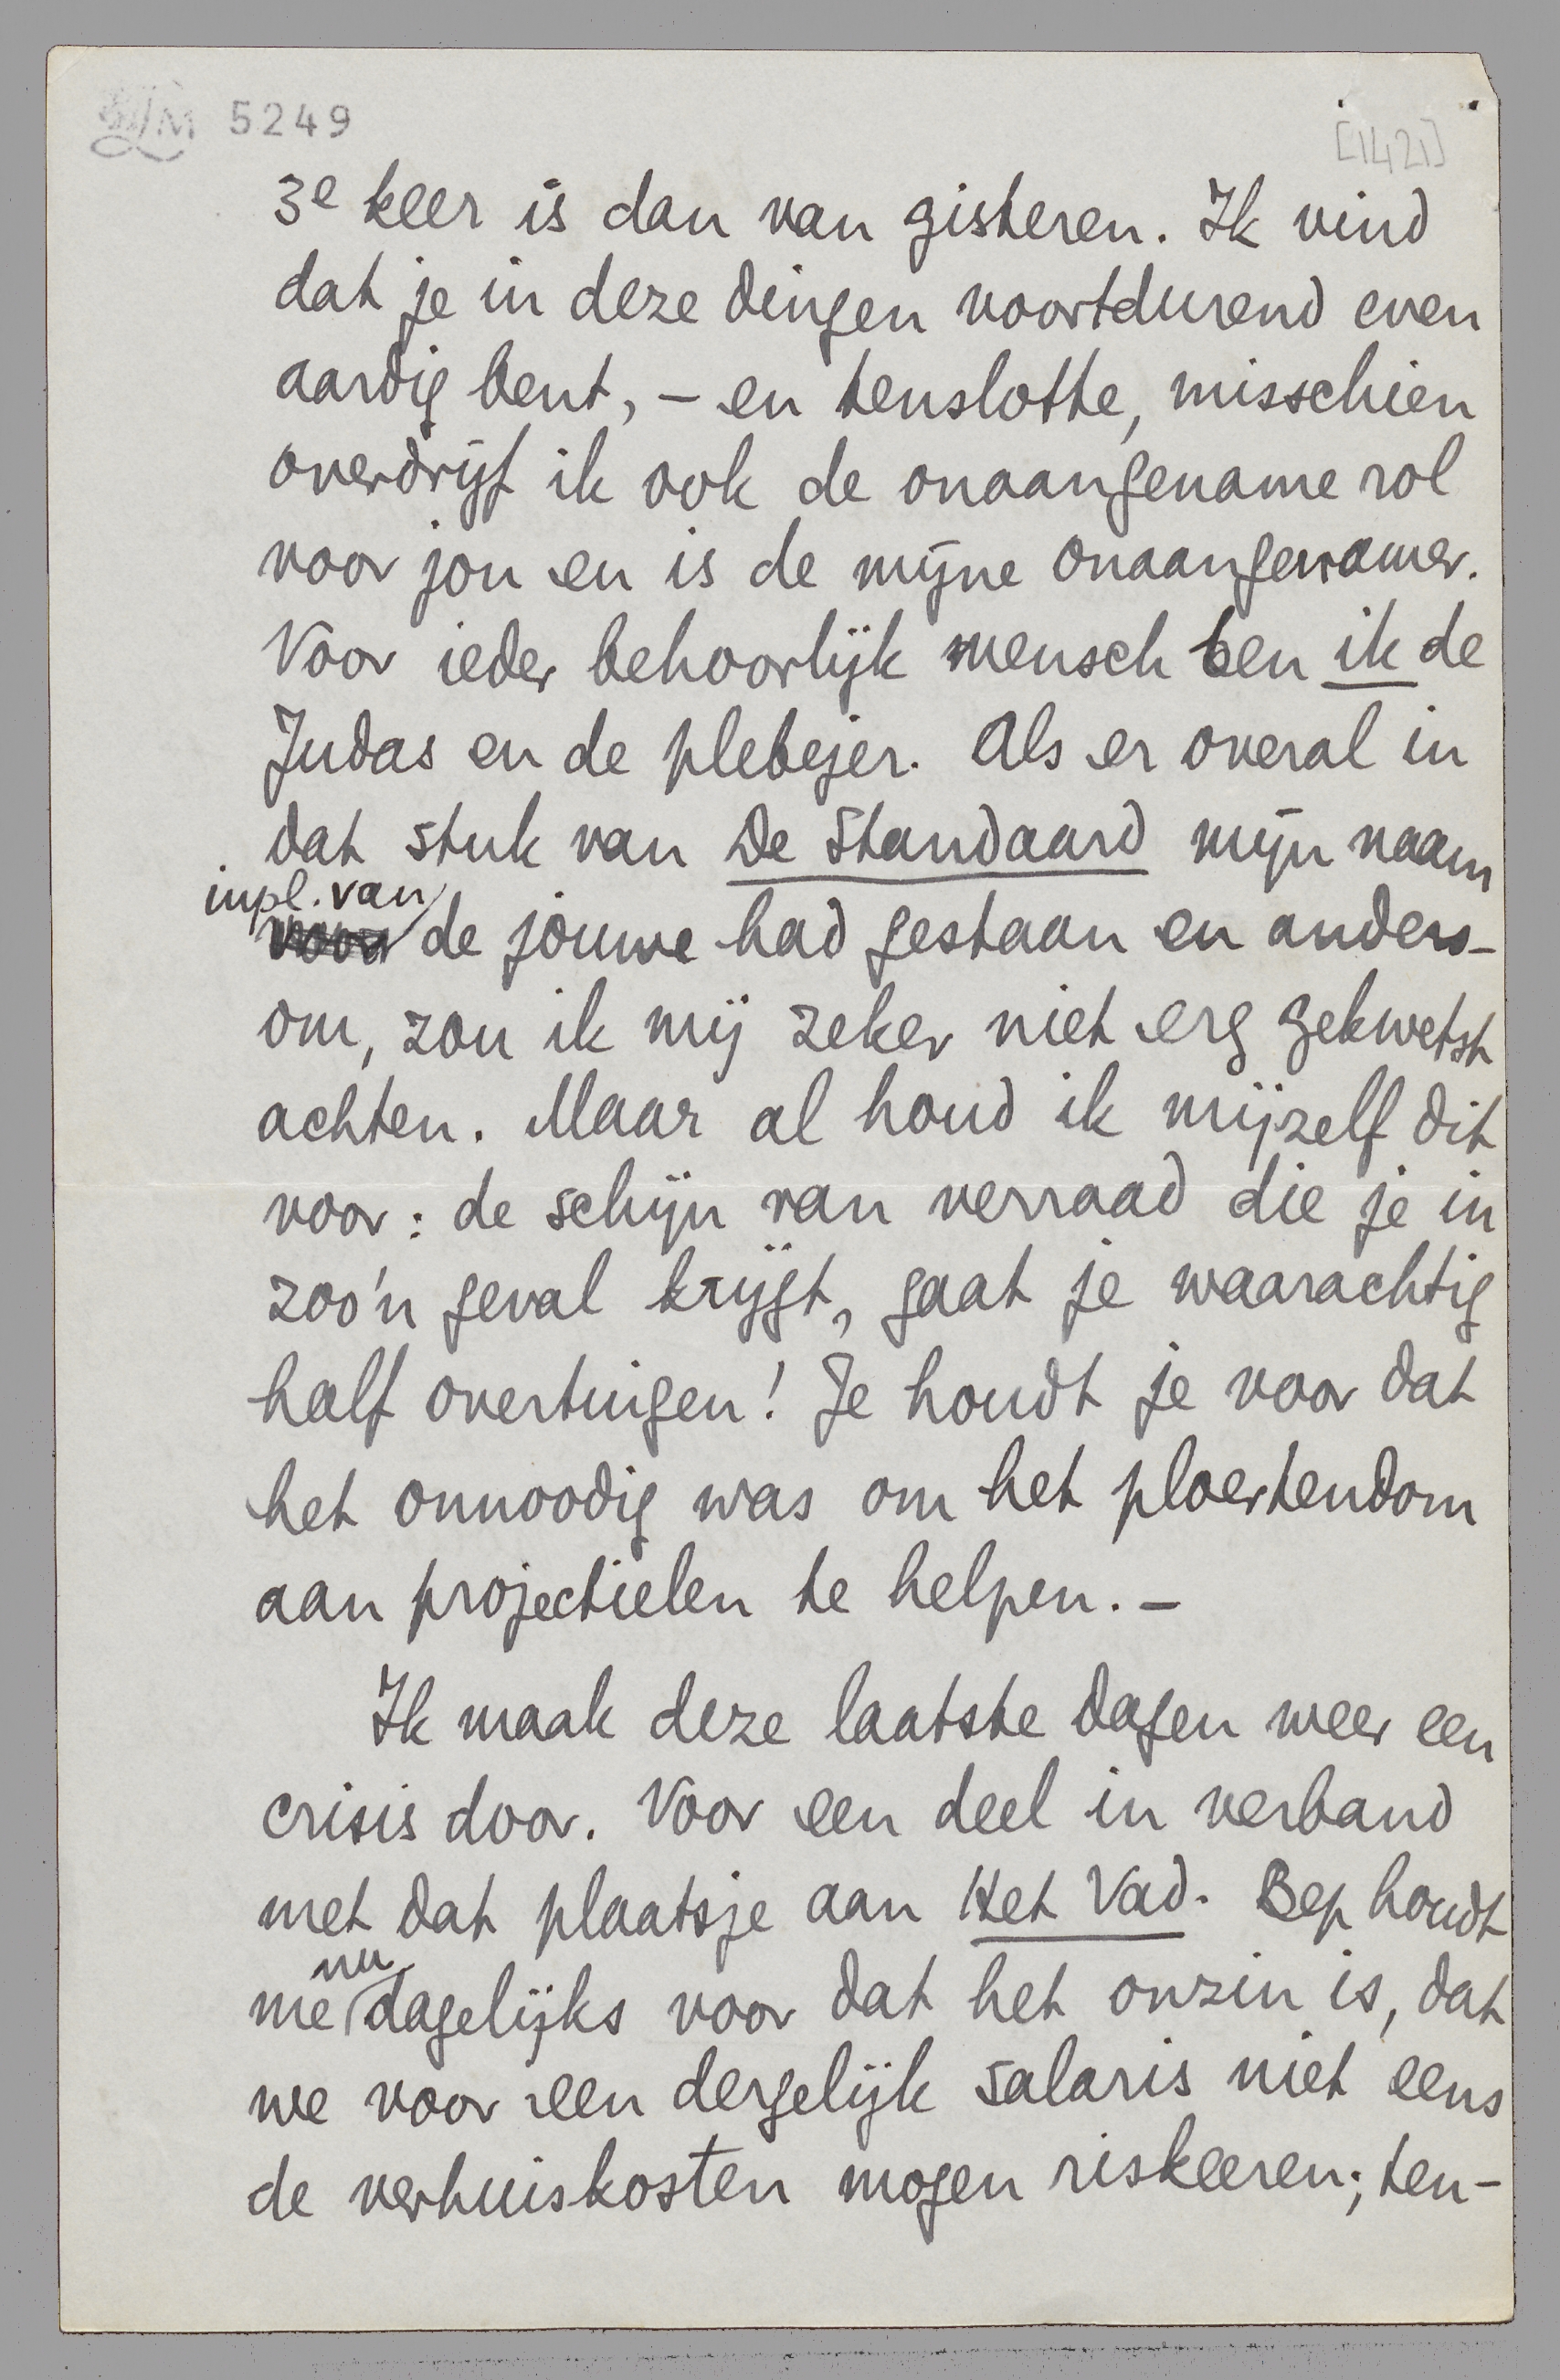 5249
[1421]
3e keer is dan van gisteren. Ik vind
dat je in deze dingen voortdurend even
aardig bent, – en tenslotte, misschien
overdrijf ik ook de onaangename rol
voor jou en is de mijne onaangenamer.
Voor ieder behoorlijk mensch ben ik de
Judas en de plebejer. Als er overal in
dat stuk van De Standaard mijn naam
inpl. van
de jouwe had gestaan en anders-
om, zou ik mij zeker niet erg gekwetst
achten. Maar al houd ik mijzelf dit
voor: de schijn van verraad die je in
zoo'n geval krijgt, gaat je waarachtig
half overtuigen! Je houdt je voor dat
het onnoodig was om het ploertendom
aan projectielen te helpen. –
Ik maak deze laatste dagen weer een
crisis door. Voor een deel in verband
met dat plaatsje aan Het Vad. Bep houdt
nu
me dagelijks voor dat het onzin is, dat
we voor een dergelijk salaris niet eens
de verhuiskosten mogen riskeeren; ten-